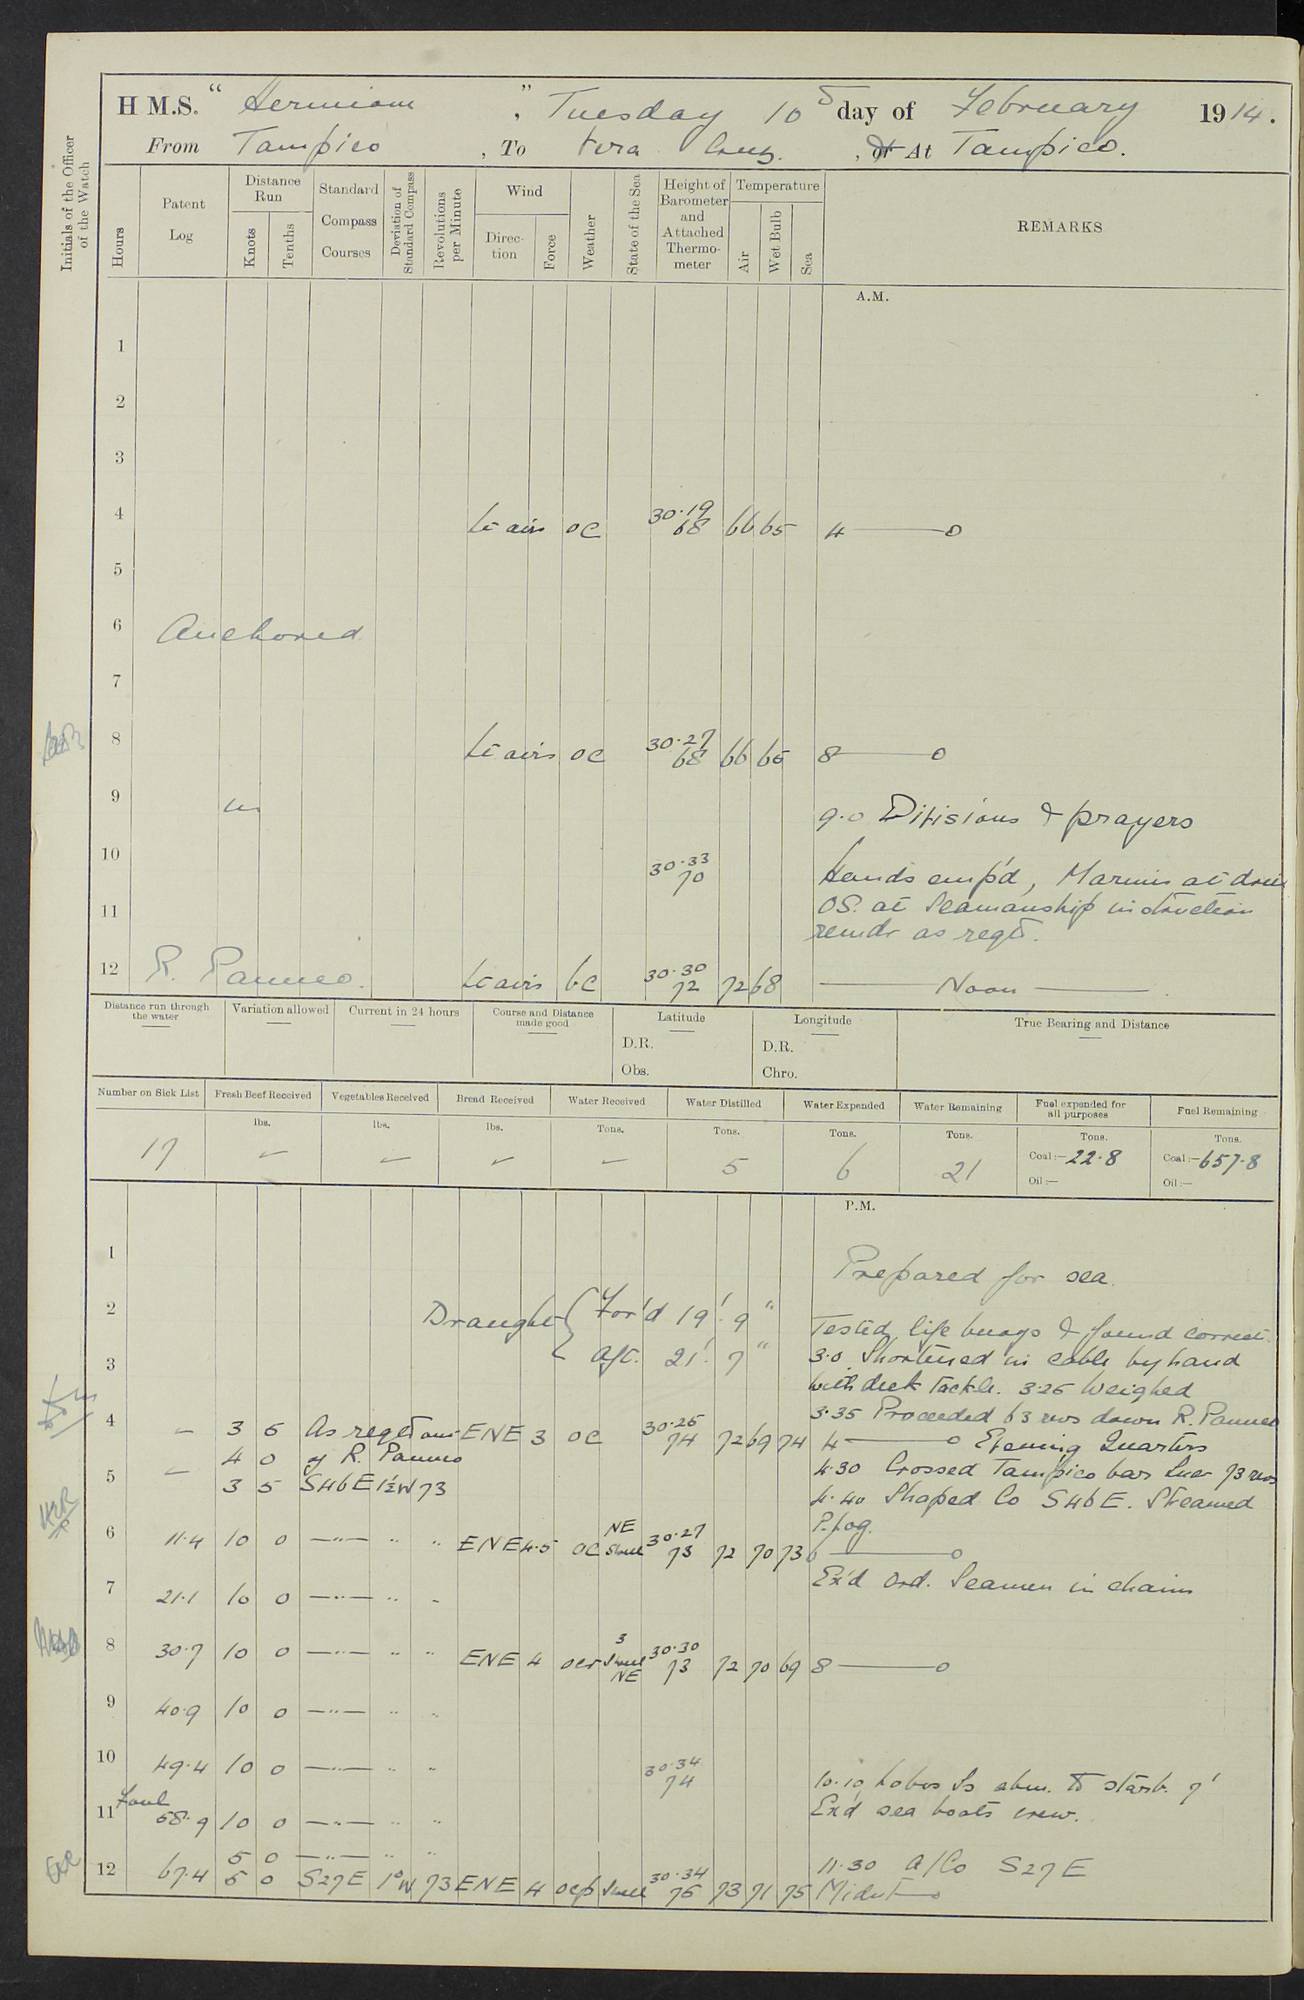 H M.S. " Hermione ", Tuesday 10th day of February 1914.
From Tampico, To Vera Cruz., or At Tampico.
Initials of the Officer of the Watch
Hours
Patent Log
Distance Run
Knots
Tenths
Standard Compass Courses
Deviation of Standard Compass
Revolutions per Minute
Wind
Direction
Force
Weather
State of the Sea
Height of Barometer and Attached Thermometer
Temperature
Air
Wet Bulb
Sea
REMARKS
A.M.
1
2
3
4 Lt airs oc 30.19 68 66 65 4 ——— 0
5
6 Anchored
7
8 Lt airs oc 30.27 68 66 65 8 ——— 0
9 in 9.0 Divisions & prayers
10 30.33 70 Hands emp'd, Marines at drill
11 OS. at Seamanship instruction
remdr as reqd.
12 R. Panuco. Lt airs bc 30.30 72 72 68 ——— Noon ———
Distance run through the water
Variation allowed
Current in 24 hours
Course and Distance made good
Latitude
D.R.
Obs.
Longitude
D.R.
Chro.
True Bearing and Distance
Number on Sick List
Fresh Beef Received
Vegetables Received
Bread Received
Water Received
Water Distilled
Water Expended
Water Remaining
Fuel expended for all purposes
Fuel Remaining
lbs. lbs. lbs. Tons. Tons. Tons. Tons. Tons. Tons.
17 5 6 21 Coal:— 22.8 Coal:— 657.8
Oil:— Oil:—
P.M.
1 Prepared for sea.
2 Draught { For'd 19'. 9" Tested life buoys & found correct.
3 Aft. 21'. 7" 3.0 Shortened in cable by hand
with deck tackle. 3.25 Weighed
3.35 Proceeded 63 revs down R. Panuco
4 — 3 5 As reqd out ENE 3 oc 30.25 74 72 69 74 4 ——— 0 Evening Quarters
4 0 of R. Panuco 4.30 Crossed Tampico bar 73 revs
5 — 3 5 S46E 1½W 73 4.40 Shaped Co S46E. Streamed
P. log.
6 11.4 10 0 —"— " " ENE 4.5 oc NE Swell 30.27 73 72 70 73 6 ——— 0
7 21.1 10 0 —"— " " Ex'd Ord. Seamen in chains
8 30.7 10 0 —"— " " ENE 4 ocr 3 Swell NE 30.30 73 72 70 69 8 ——— 0
9 40.9 10 0 —"— " "
10 49.4 10 0 —"— " " 30.34 74 10.10 Lobos Is abm. to starb. 7'
11 Foul 58.9 10 0 —"— " " Ex'd sea boats crew.
5 0 —"— " " 11.30 A/Co S27E
12 67.4 5 0 S27E 1°W 73 ENE 4 ocp Swell 30.34 75 73 71 75 Midnt — 0